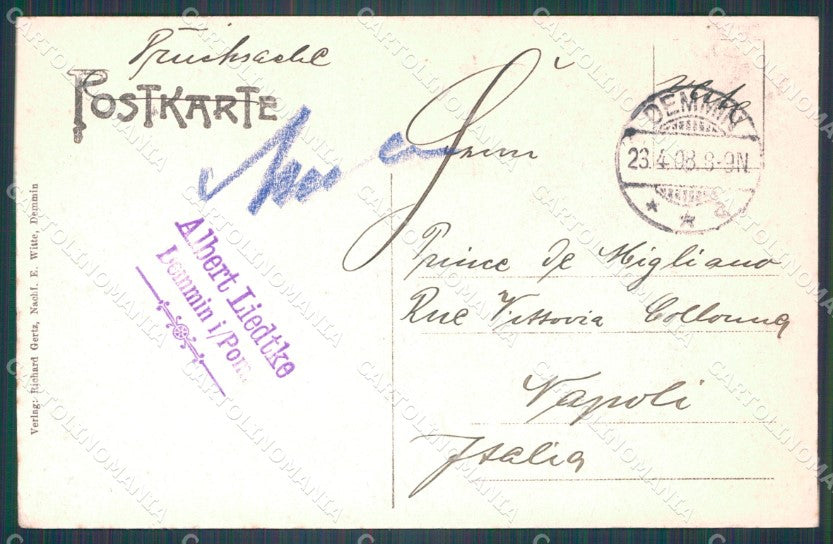 Drucksache
POSTKARTE
DEMMIN
23.4.08.8-9N
Albert Liedtke
Demmin i/Pom.
Prince de Migliano
Rue Vittoria Collonna
Napoli
Italia
Verlag: Richard Gertz, Nachf. E. Witte, Demmin
CARTOLINOMANIA